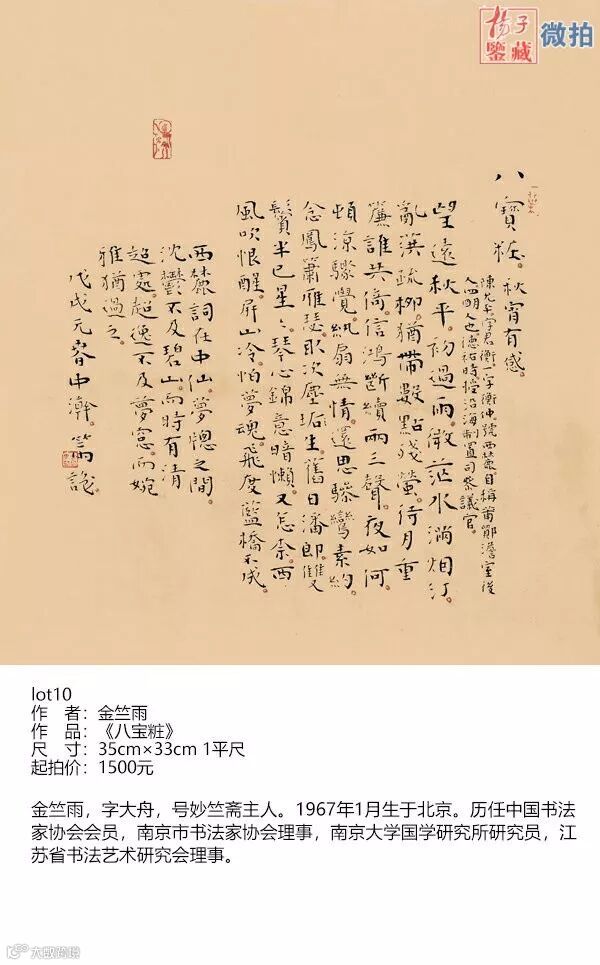 揚子
鑒藏
微拍
八寶粧。秋宵有感。
陳允平字君衡。一字衡仲號西麓。自稱莆鄞澹室後
人四明人也德祐時授沿海制置司參議官。
望遠秋平。初過雨微茫水滿烟汀。
亂葓疏柳。猶帶數點殘螢。待月重
簾誰共倚。信鴻斷續兩三聲。夜如何。
頓涼驟覺紈扇無情。還思驂鸞素約
念鳳簫雅瑟取次塵垢生。舊日潘郎雙
鬢半已星々。琴心錦意暗懶。又怎奈。西
風吹恨醒。屏山冷怕夢魂。飛度藍橋不成。
西麓詞在中仙。夢窗之間。
沈鬱不及碧山。而時有清
超處。超逸不及夢窗。而婉
雅猶過之。
戊戌元春中澣。竺雨識。
lot10
作 者:金竺雨
作 品:《八宝粧》
尺 寸:35cm×33cm 1平尺
起拍价:1500元
金竺雨,字大舟,号妙竺斋主人。1967年1月生于北京。历任中国书法
家协会会员,南京市书法家协会理事,南京大学国学研究所研究员,江
苏省书法艺术研究会理事。
大数跨境